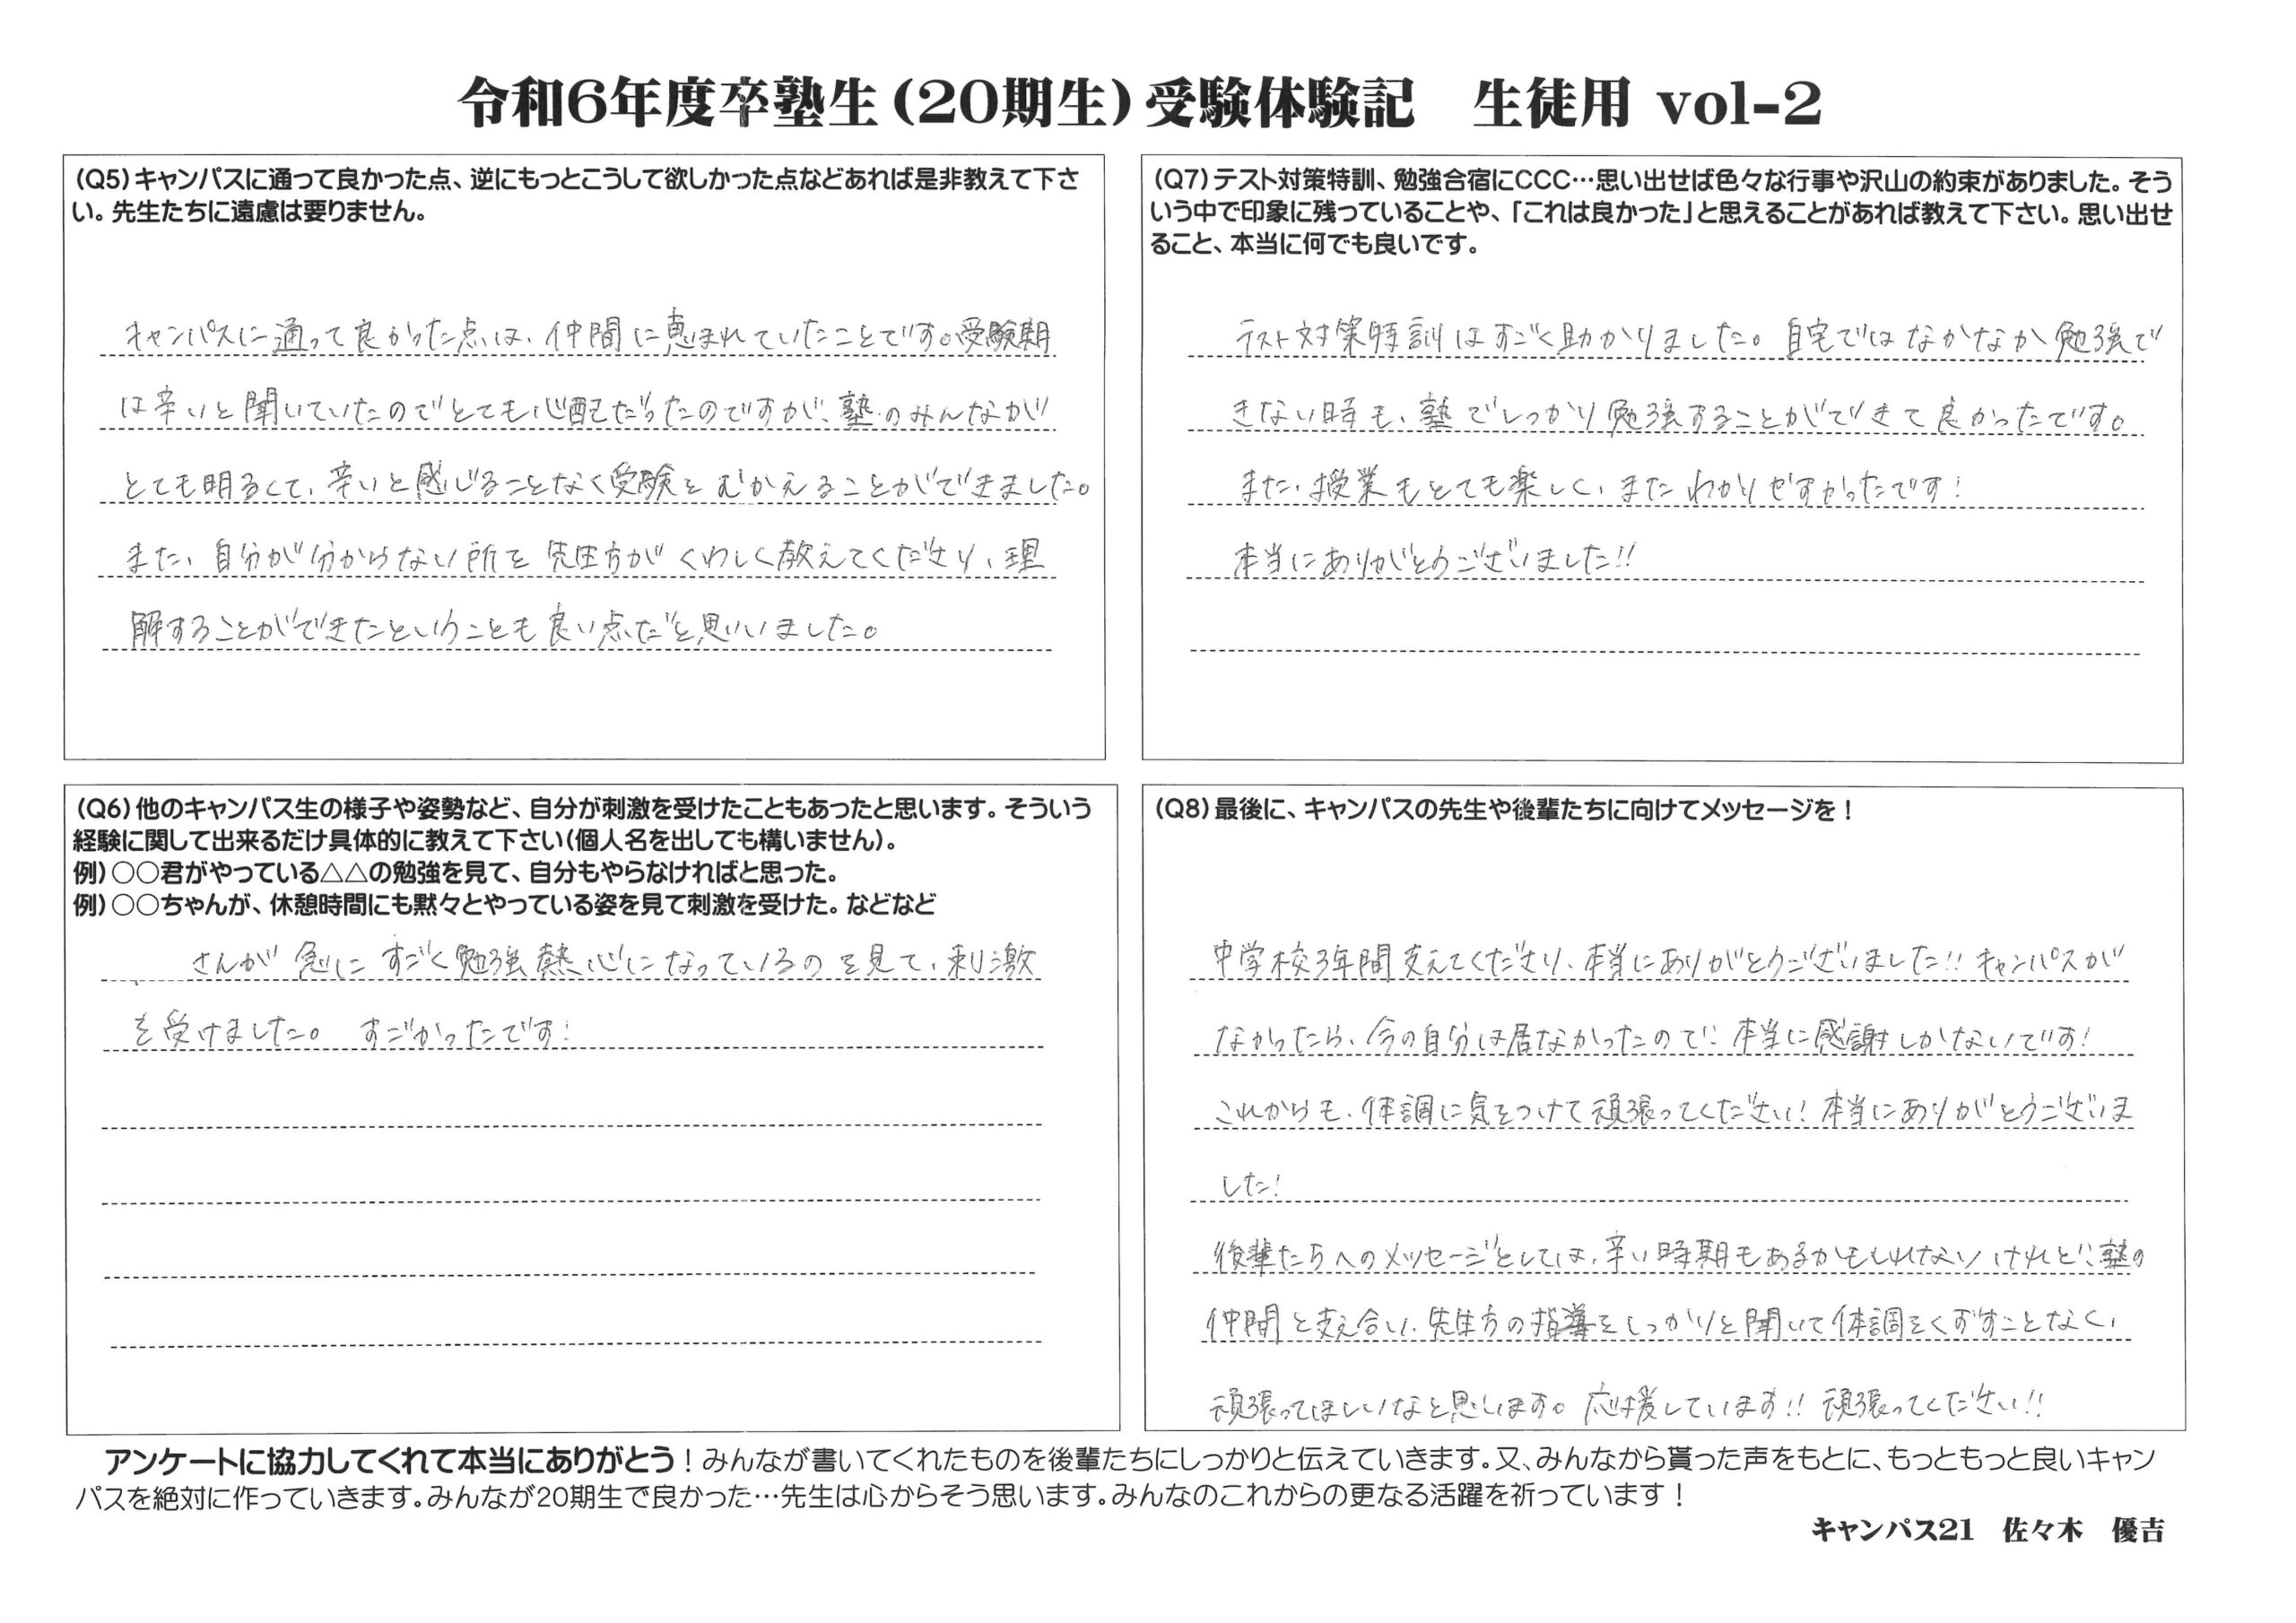 令和6年度卒塾生(20期生)受験体験記　生徒用 vol-2
(Q5)キャンパスに通って良かった点、逆にもっとこうして欲しかった点などあれば是非教えて下さ
い。先生たちに遠慮は要りません。
キャンパスに通って良かった点は、仲間に恵まれていたことです。受験期
は辛いと聞いていたのでとても心配だったのですが、塾のみんなが
とても明るくて、辛いと感じることなく受験をむかえることができました。
また、自分が分からない所を先生方がくわしく教えてくださり、理
解することができたということも良い点だと思いました。
(Q6)他のキャンパス生の様子や姿勢など、自分が刺激を受けたこともあったと思います。そういう
経験に関して出来るだけ具体的に教えて下さい(個人名を出しても構いません)。
例)○○君がやっている△△の勉強を見て、自分もやらなければと思った。
例)○○ちゃんが、休憩時間にも黙々とやっている姿を見て刺激を受けた。などなど
さんが急にすごく勉強熱心になっているのを見て、刺激
を受けました。すごかったです!
(Q7)テスト対策特訓、勉強合宿にCCC…思い出せば色々な行事や沢山の約束がありました。そう
いう中で印象に残っていることや、「これは良かった」と思えることがあれば教えて下さい。思い出せ
ること、本当に何でも良いです。
テスト対策特訓はすごく助かりました。自宅ではなかなか勉強で
きない時も、塾でしっかり勉強することができて良かったです。
また、授業もとても楽しく、またわかりやすかったです!
本当にありがとうございました!!
(Q8)最後に、キャンパスの先生や後輩たちに向けてメッセージを!
中学校3年間支えてくださり、本当にありがとうございました!!キャンパスが
なかったら、今の自分は居なかったので、本当に感謝しかないです!
これからも、体調に気をつけて頑張ってください!本当にありがとうございま
した!
後輩たちへのメッセージとしては、辛い時期もあるかもしれないけれど、塾の
仲間と支え合い、先生方の指導をしっかりと聞いて体調をくずすことなく、
頑張ってほしいなと思います。応援しています!!頑張ってください!!
アンケートに協力してくれて本当にありがとう!みんなが書いてくれたものを後輩たちにしっかりと伝えていきます。又、みんなから貰った声をもとに、もっともっと良いキャン
パスを絶対に作っていきます。みんなが20期生で良かった…先生は心からそう思います。みんなのこれからの更なる活躍を祈っています!
キャンパス21　佐々木　優吉